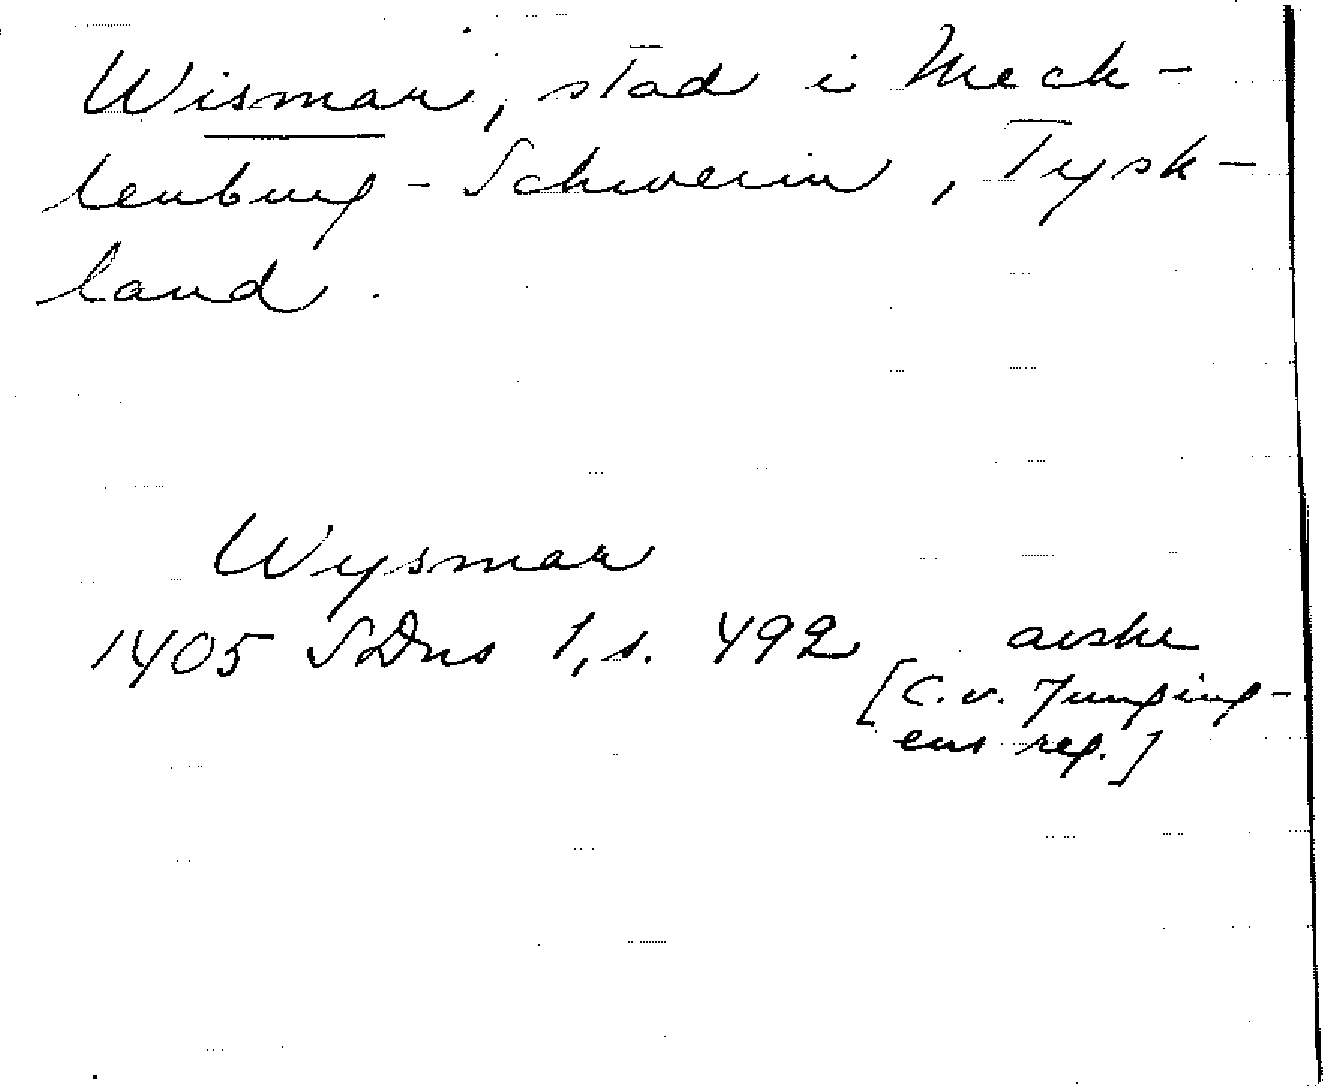 Wismar, stad i Meck-
lenburg-Schwerin, Tysk-
land.
Wysmar
1405 SDns 1, s. 492 avskr
[C. v. Junging-
ens reg.]